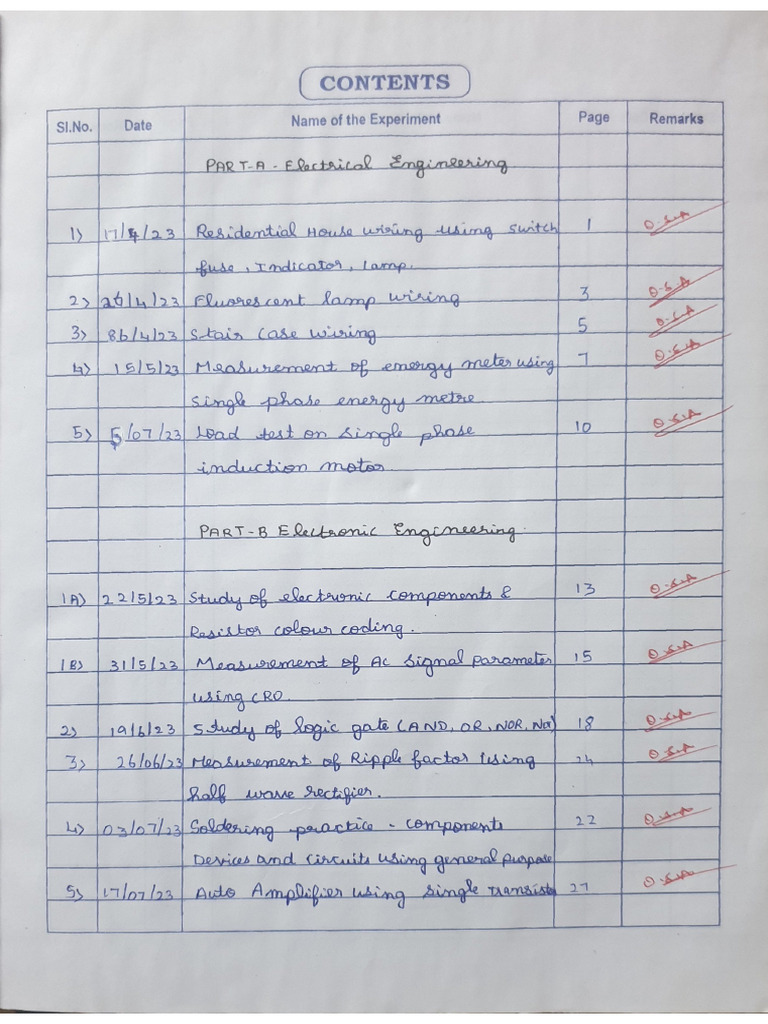 CONTENTS
Sl.No. Date Name of the Experiment Page Remarks
PART-A - Electrical Engineering
1) 17/4/23 Residential House wiring using switch 1 O.S.A
fuse, Indicator, lamp.
2) 26/4/23 Fluorescent lamp wiring 3 O.S.A
3) 86/4/23 Stair case wiring 5 O.S.A
4) 15/5/23 Measurement of energy meter using 7 O.S.A
single phase energy metre
5) 5/07/23 Load test on single phase 10 O.S.A
induction motor
PART-B Electronic Engineering.
1A) 22/5/23 Study of electronic components & 13 O.S.A
Resistor colour coding.
1B) 31/5/23 Measurement of AC signal parameter 15 O.S.A
using CRO.
2) 19/6/23 Study of logic gate (AND, OR, NOR, Not) 18 O.S.A
3) 26/06/23 Measurement of Ripple factor using 24 O.S.A
half wave rectifier.
4) 03/07/23 Soldering practice - components 22 O.S.A
Devices and circuits using general purpose
5) 17/07/23 Auto Amplifier using single transistor 27 O.S.A